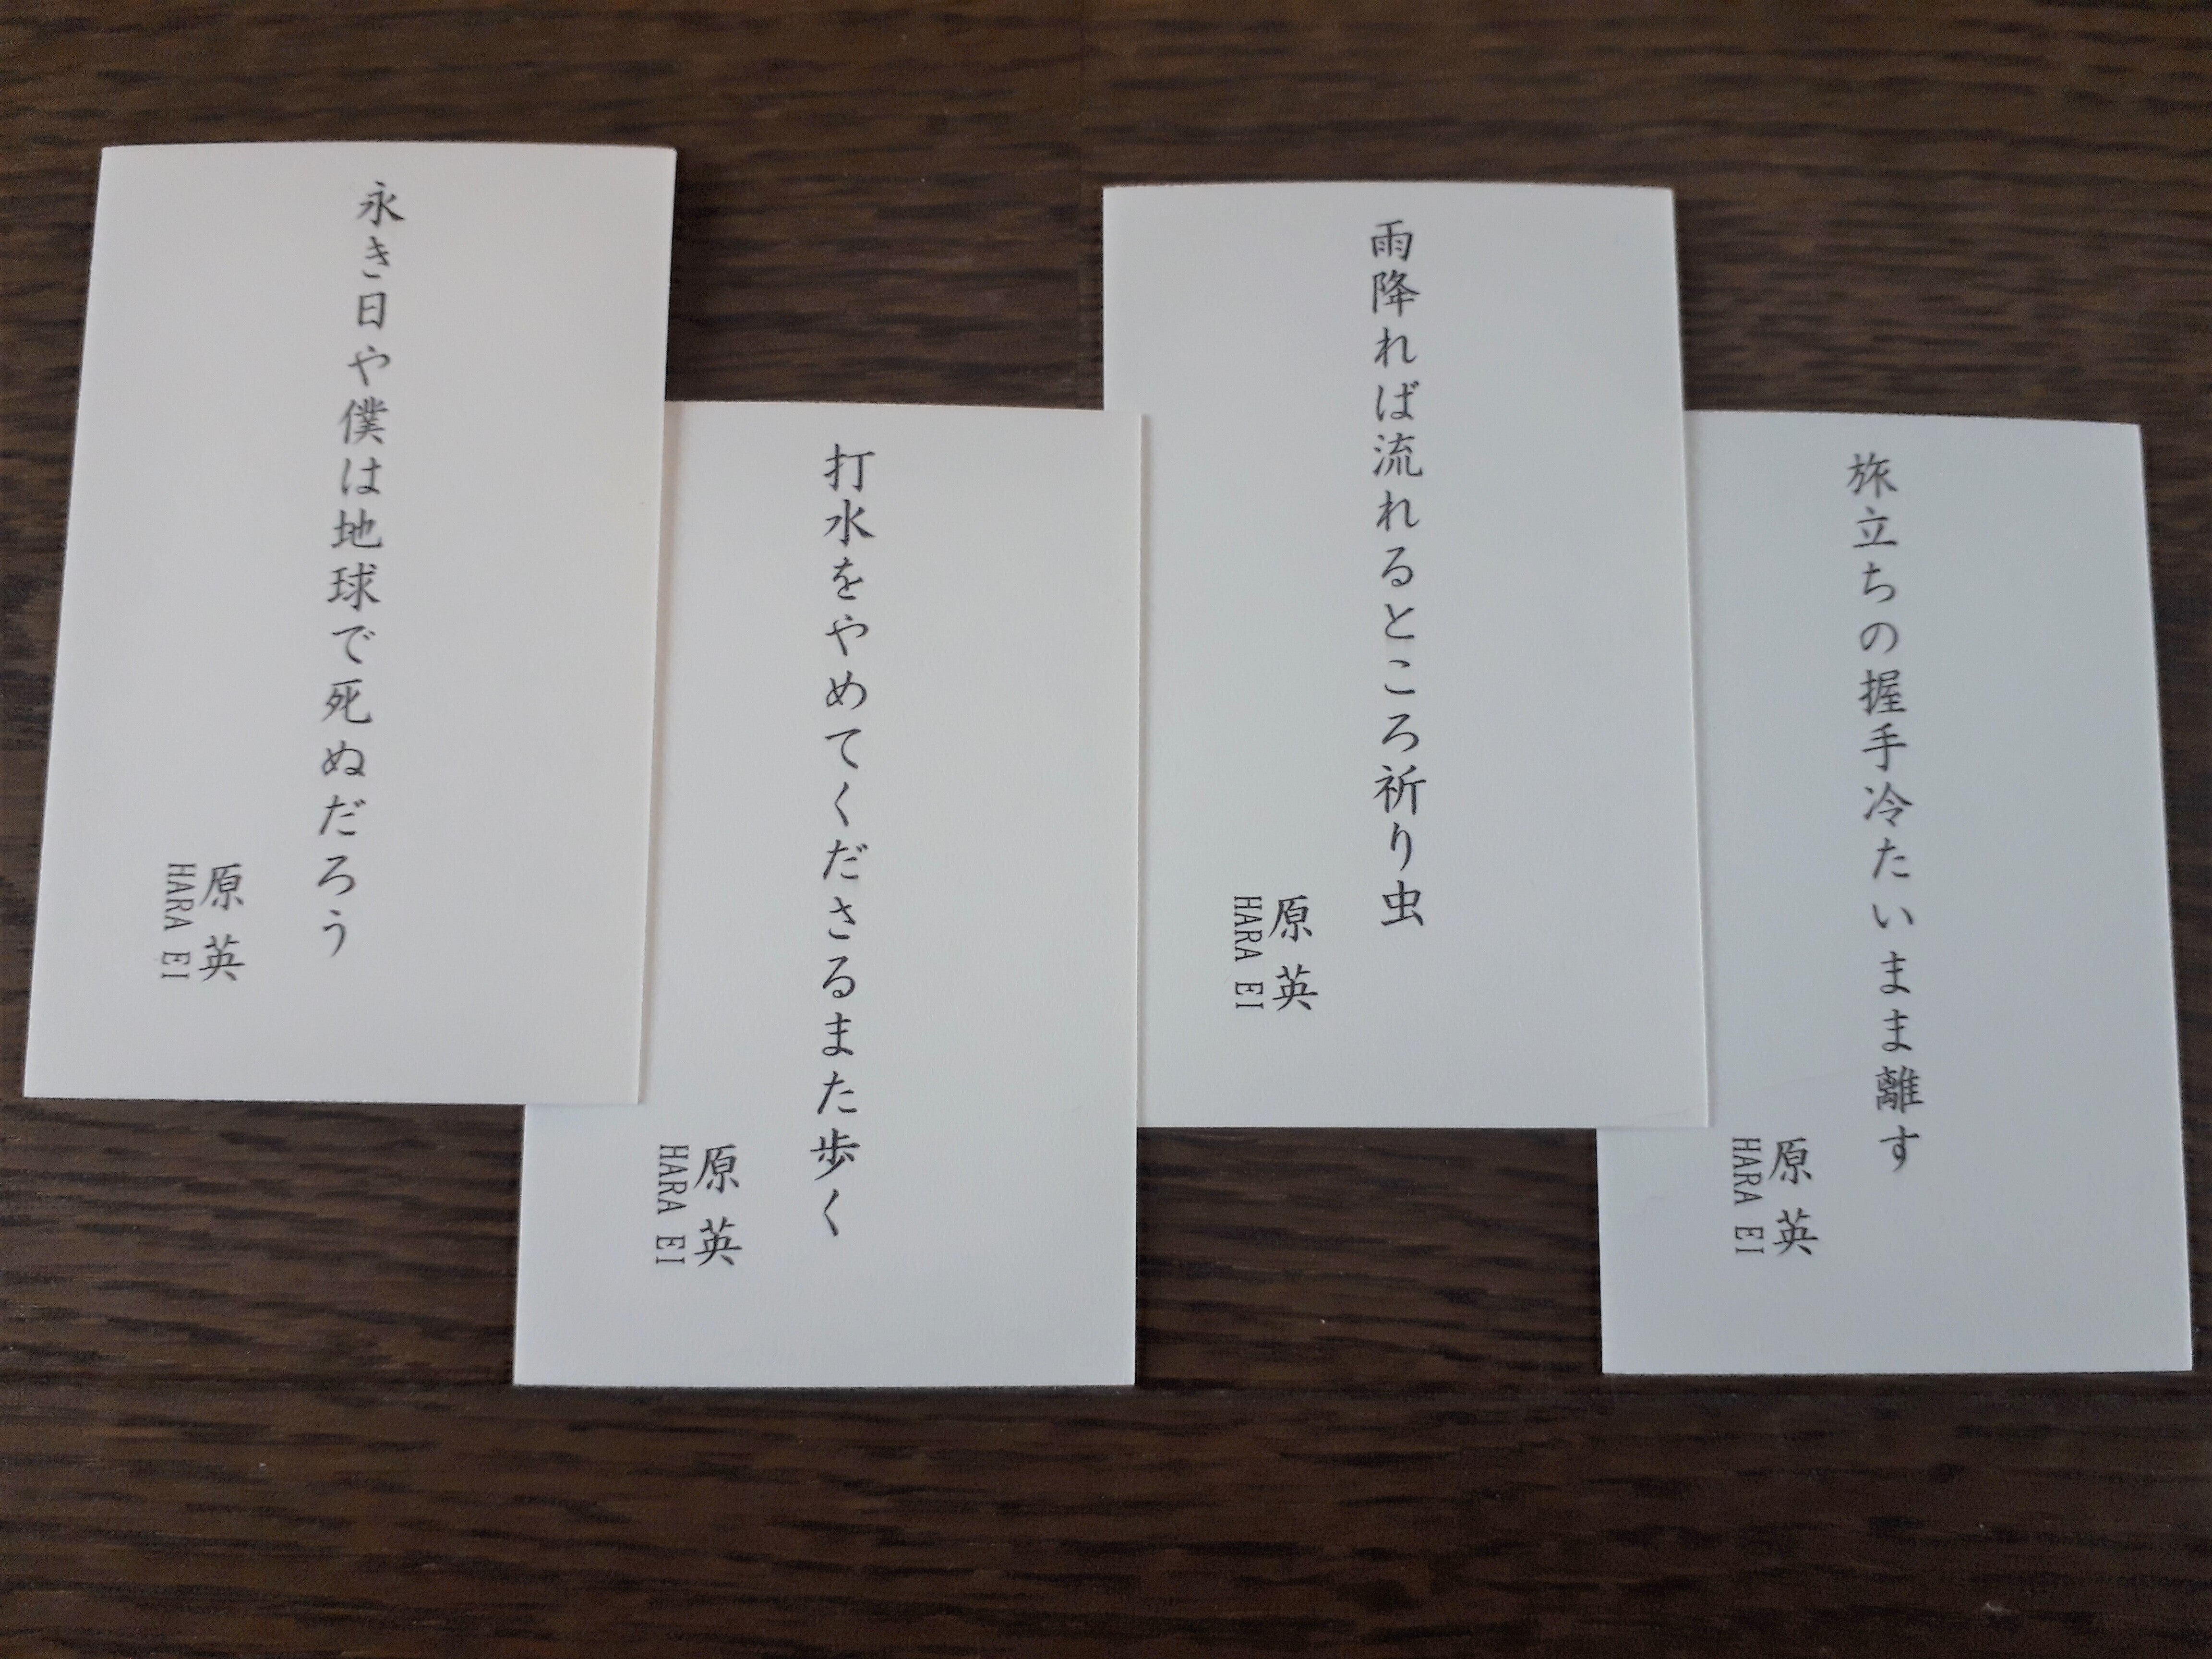 永き日や僕は地球で死ぬだろう
原 英
HARA EI
打水をやめてくださるまた歩く
原 英
HARA EI
雨降れば流れるところ祈り虫
原 英
HARA EI
旅立ちの握手冷たいまま離す
原 英
HARA EI